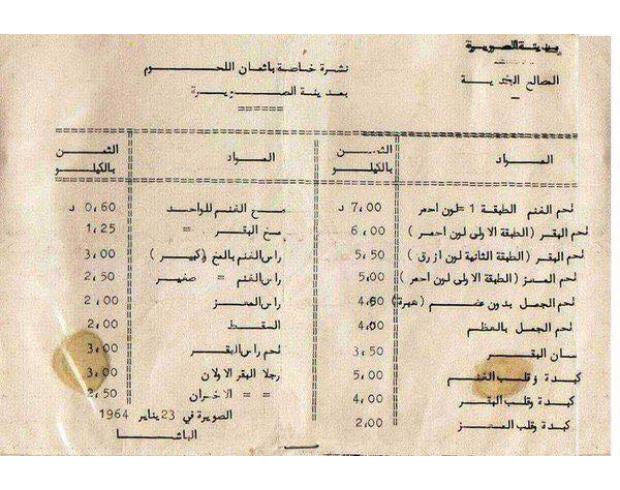 مدينة الصويرة
المصالح البلدية
نشرة خاصة باثمان اللحوم
بمدينة الصويرة
المواد الثمن بالكيلو
لحم الغنم الطبقة 1 = لون احمر 7,00 د
لحم البقر (الطبقة الاولى لون احمر) 6,00
لحم البقر (الطبقة الثانية لون ازرق) 5,50
لحم المعز (الطبقة الاولى لون احمر) 5,00
لحم الجمل بدون عضم (هبرة)
لحم الجمل بالعظم
سان البقر 3,50
كبدة وقلب الغنم 5,00
كبدة وقلب البقر 4,00
كبدة وقلب المعز 2,00
المواد الثمن بالكيلو
مخ الغنم للواحد 0,60 د
مخ البقر = 1,25
راس الغنم بالمخ (كبير) 3,00
راس الغنم = صغير 2,50
راس المعز 2,00
السقط 2,00
لحم راس البقر 3,00
رجلا البقر الاولان 3,00
= = الاخران 2,50
الصويرة في 23 يناير 1964
الباشا